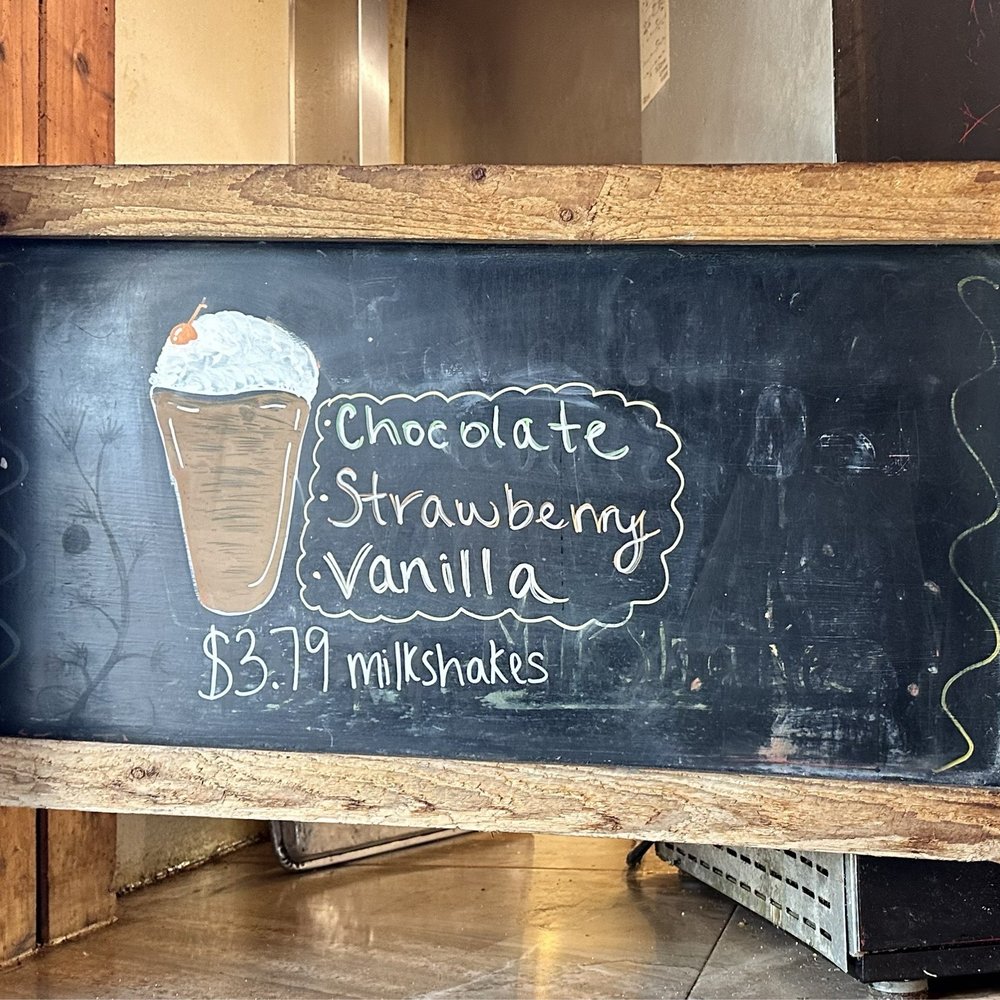 ·Chocolate
·Strawberry
·Vanilla
$3.79 milkshakes